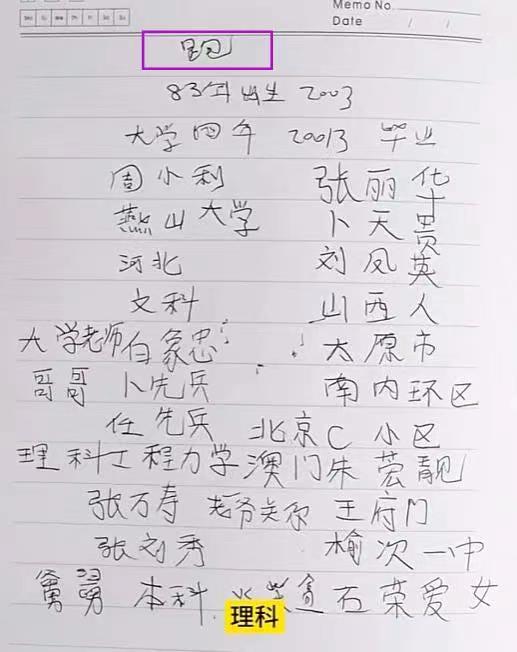 Memo No.
Date / /
跑
83年出生 2003
大学四年 20013 毕业
周小利 张丽华
燕山大学 卜天贵
河北 刘凤英
文科 山西人
大学老师白象忠 太原市
哥哥 卜先兵 南内环区
任先兵 北京C小区
理科工程力学澳门朱芸靓
张万寿 老爷关系 王府门
张刘秀 榆次一中
舅舅 本科 石荣爱女
理科